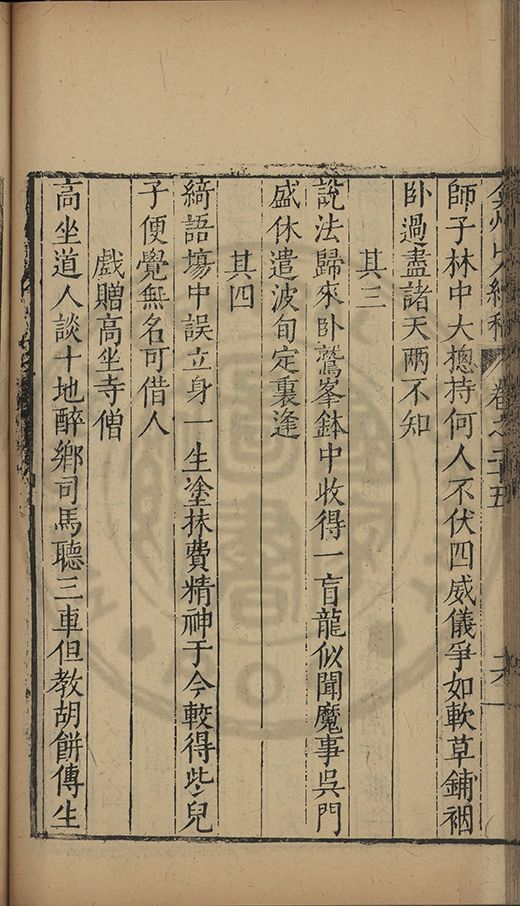 弇州山人續稿 卷之二十五 六
師子林中大摠持何人不伏四威儀爭如軟草鋪裀
卧過盡諸天兩不知
其三
說法歸來卧鷲峯鉢中收得一盲龍似聞魔事吳門
盛休遣波旬定裏逢
其四
綺語塲中誤立身一生塗抹費精神于今較得些兒
子便覺無名可借人
戲贈高坐寺僧
高坐道人談十地醉鄉司馬聽三車但教胡餅傳生